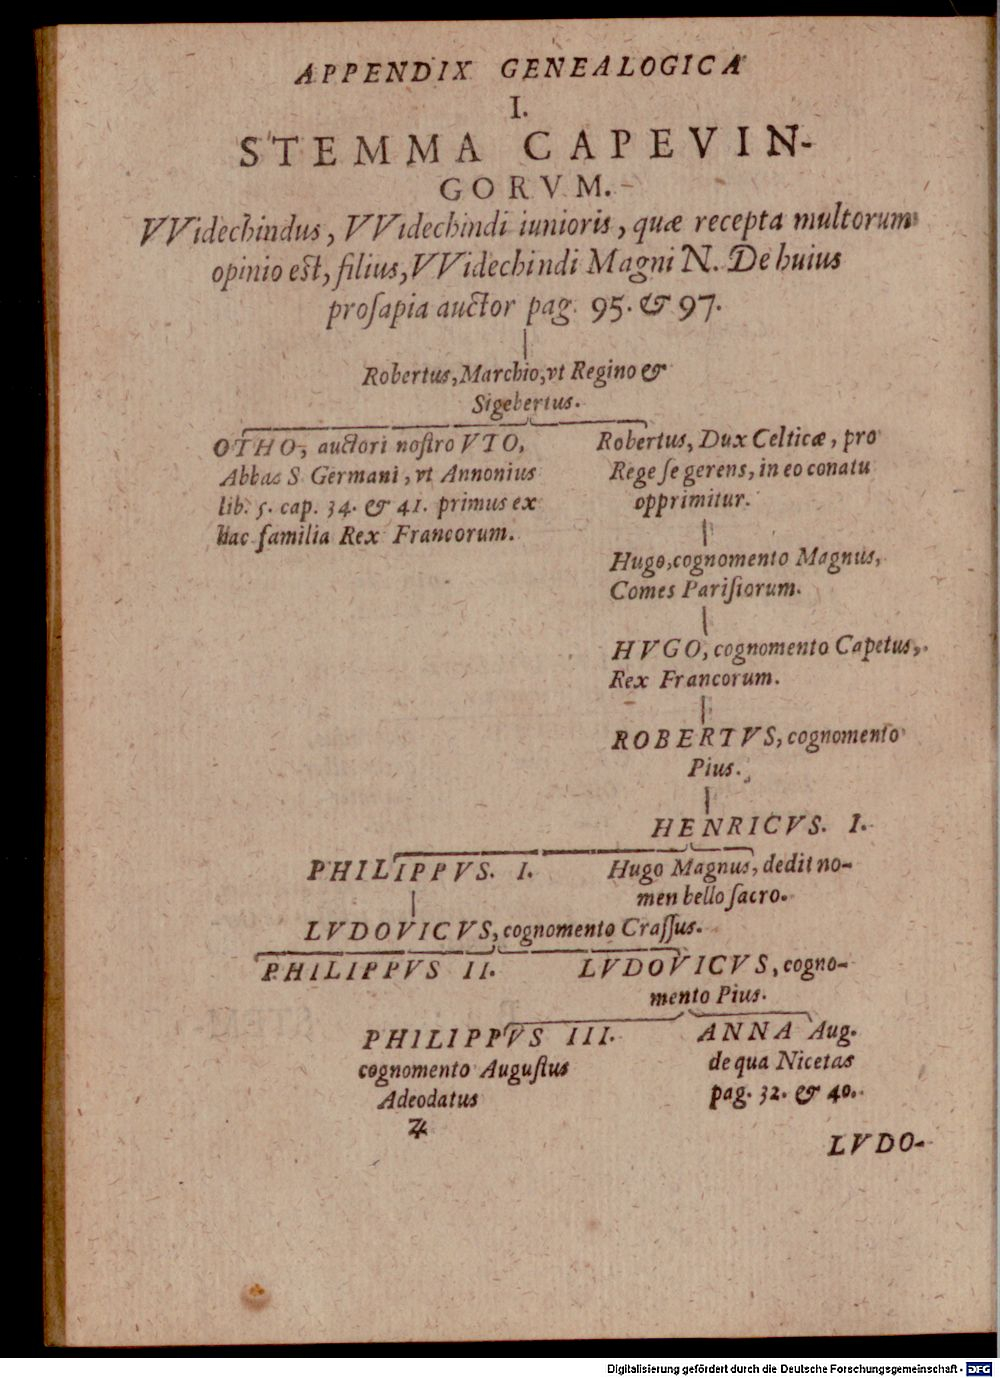 APPENDIX GENEALOGICA
I.
STEMMA CAPEVIN-
GORVM.
VVidechindus, VVidechindi iunioris, quæ recepta multorum
opinio est, filius, VVidechindi Magni N. De huius
proſapia auctor pag. 95. & 97.
Robertus, Marchio, vt Regino &
Sigebertus.
OTHO, auctori noſtro VTO,
Abbas S Germani, vt Annonius
lib. 5. cap. 34. & 41. primus ex
hac familia Rex Francorum.
Robertus, Dux Celticæ, pro
Rege ſe gerens, in eo conatu
opprimitur.
Hugo, cognomento Magnus,
Comes Pariſiorum.
HVGO, cognomento Capetus,
Rex Francorum.
ROBERTVS, cognomento
Pius.
HENRICVS. I.
PHILIPPVS. I.
Hugo Magnus, dedit no-
men bello ſacro.
LVDOVICVS, cognomento Craſſus.
PHILIPPVS II.
LVDOVICVS, cogno-
mento Pius.
PHILIPPVS III.
cognomento Auguſtus
Adeodatus
ANNA Aug.
de qua Nicetas
pag. 32. & 40.
LVDO-
Digitalisierung gefördert durch die Deutsche Forschungsgemeinschaft - DFG